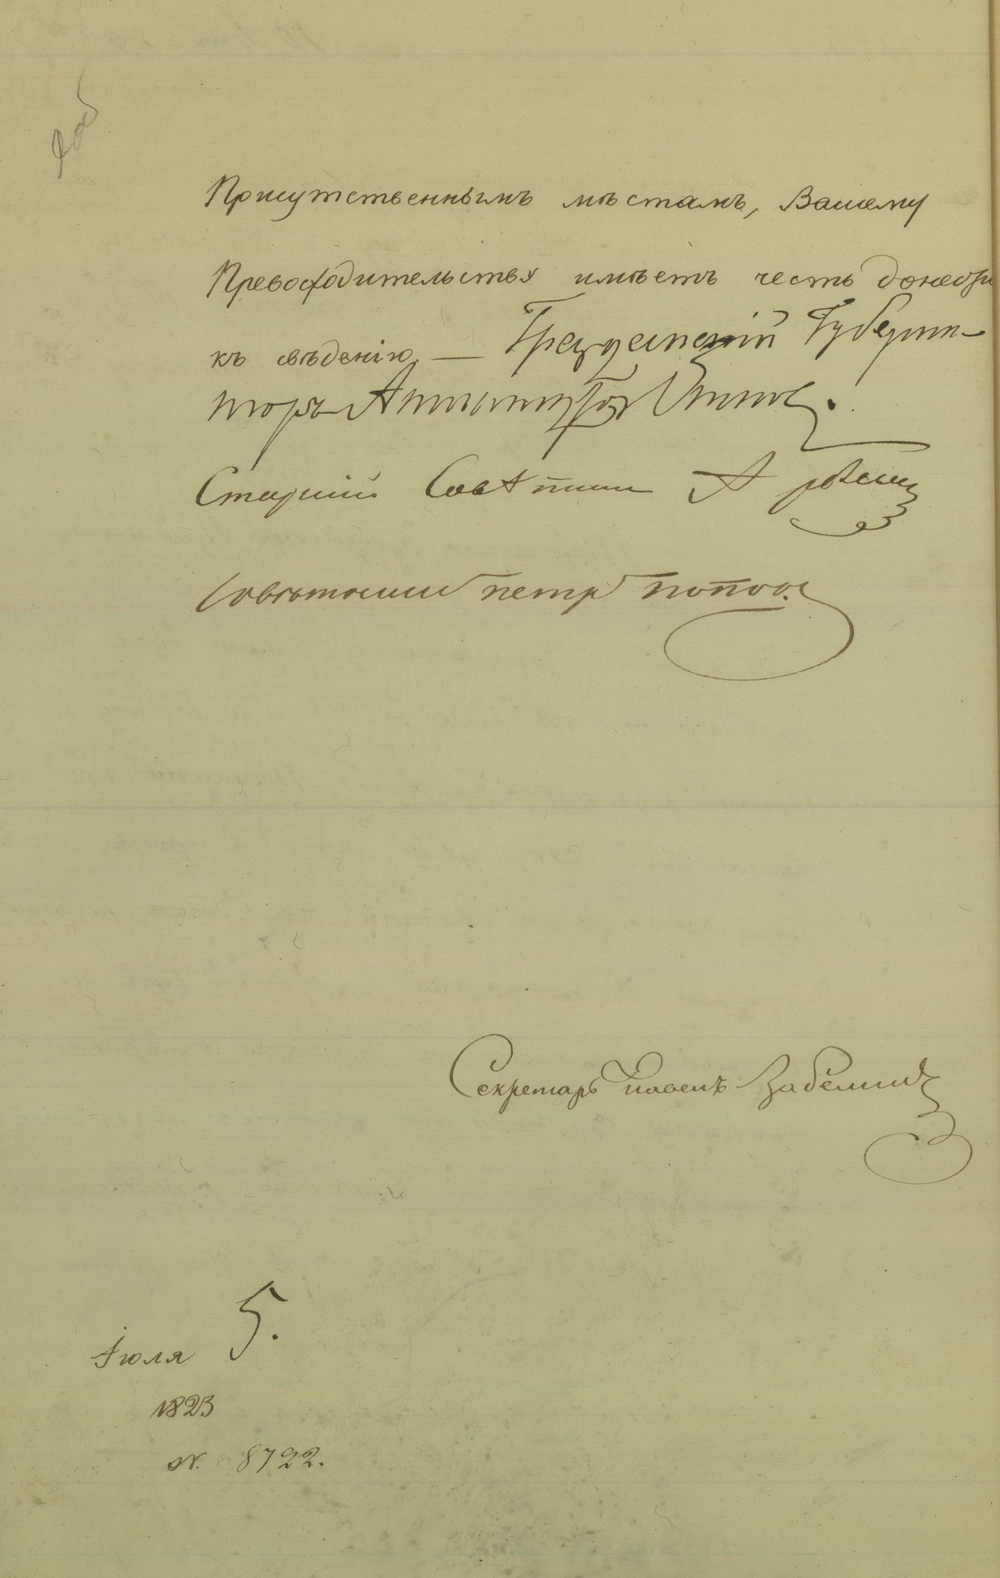 Присутственнымъ мѣстамъ, Вашему
Превосходительству имѣетъ честь донести
къ свѣденію. — Гражданскій Губерна-
торъ
Старшій Совѣтникъ А
Совѣтникъ Петръ Поповъ.
Секретарь Павелъ Забелинъ
Іюля 5.
1823
N. 8722.